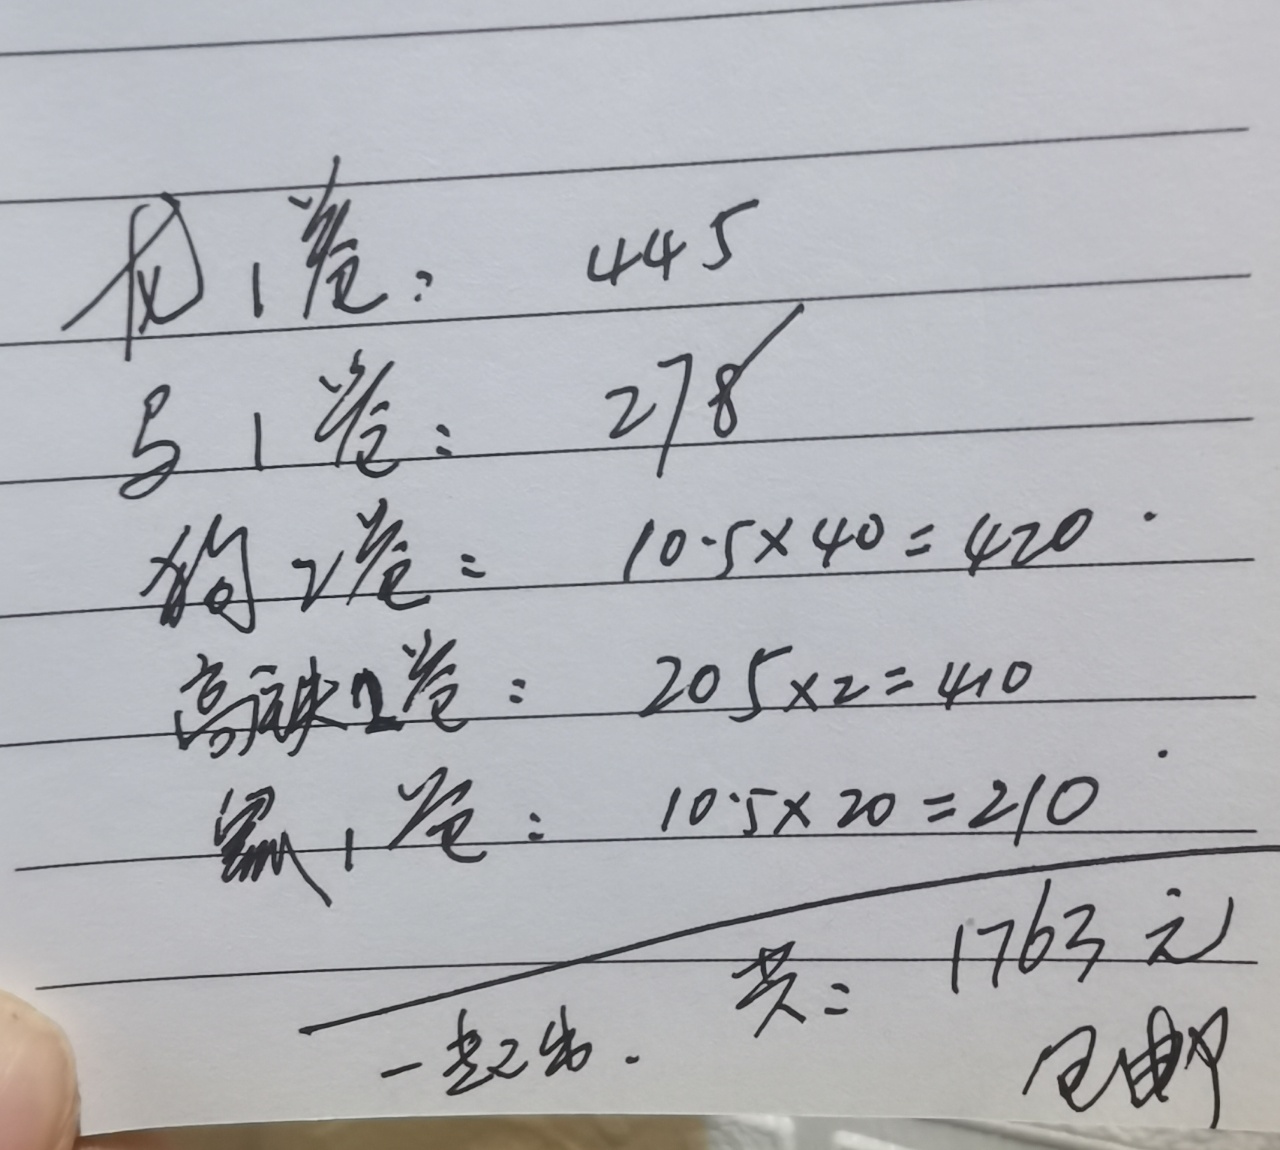 龙1卷: 445
马1卷: 278
狗2卷: 10.5×40=420.
高铁2卷: 205×2=410
鼠1卷: 10.5×20=210.
共: 1763元
一起出. 包邮